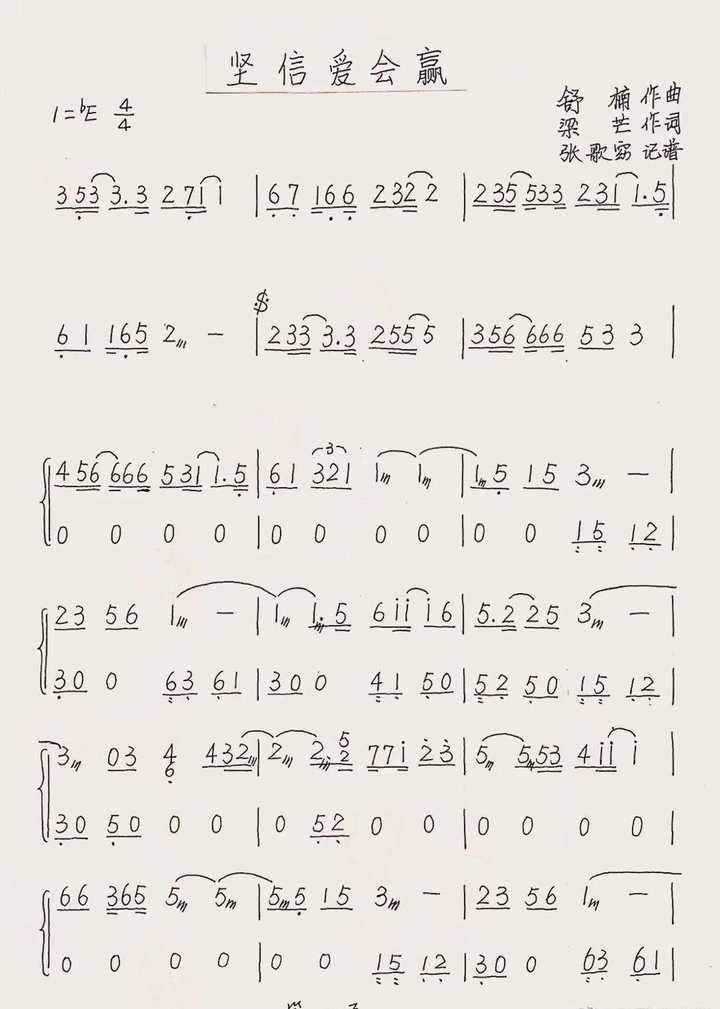 坚信爱会赢
1=♭E 4/4
舒楠 作曲
梁芒 作词
张歌窈 记谱
3 5 3 3. 3 2 7 1 1 | 6 7 1 6 6 2 3 2 2 | 2 3 5 5 3 3 2 3 1 1. 5 |
6 1 1 6 5 2 − | 2 3 3 3. 3 2 5 5 5 | 3 5 6 6 6 6 5 3 3 |
4 5 6 6 6 6 5 3 1 1. 5 | 6 1 3 2 1 1 1 | 1 5 1 5 3 − |
0 0 0 0 | 0 0 0 0 | 0 0 1 5 1 2 |
2 3 5 6 1 − | 1 1. 5 6 i i i 6 | 5. 2 2 5 3 − |
3 0 0 6 3 6 1 | 3 0 0 4 1 5 0 | 5 2 5 0 1 5 1 2 |
3 0 3 4 6 4 3 2 | 2 2 5 2 7 7 i 2 3 | 5 5 5 3 4 i i i |
3 0 5 0 0 0 | 0 5 2 0 0 | 0 0 0 0 |
6 6 3 6 5 5 5 | 5 5 1 5 3 − | 2 3 5 6 1 − |
0 0 0 0 | 0 0 1 5 1 2 | 3 0 0 6 3 6 1 |